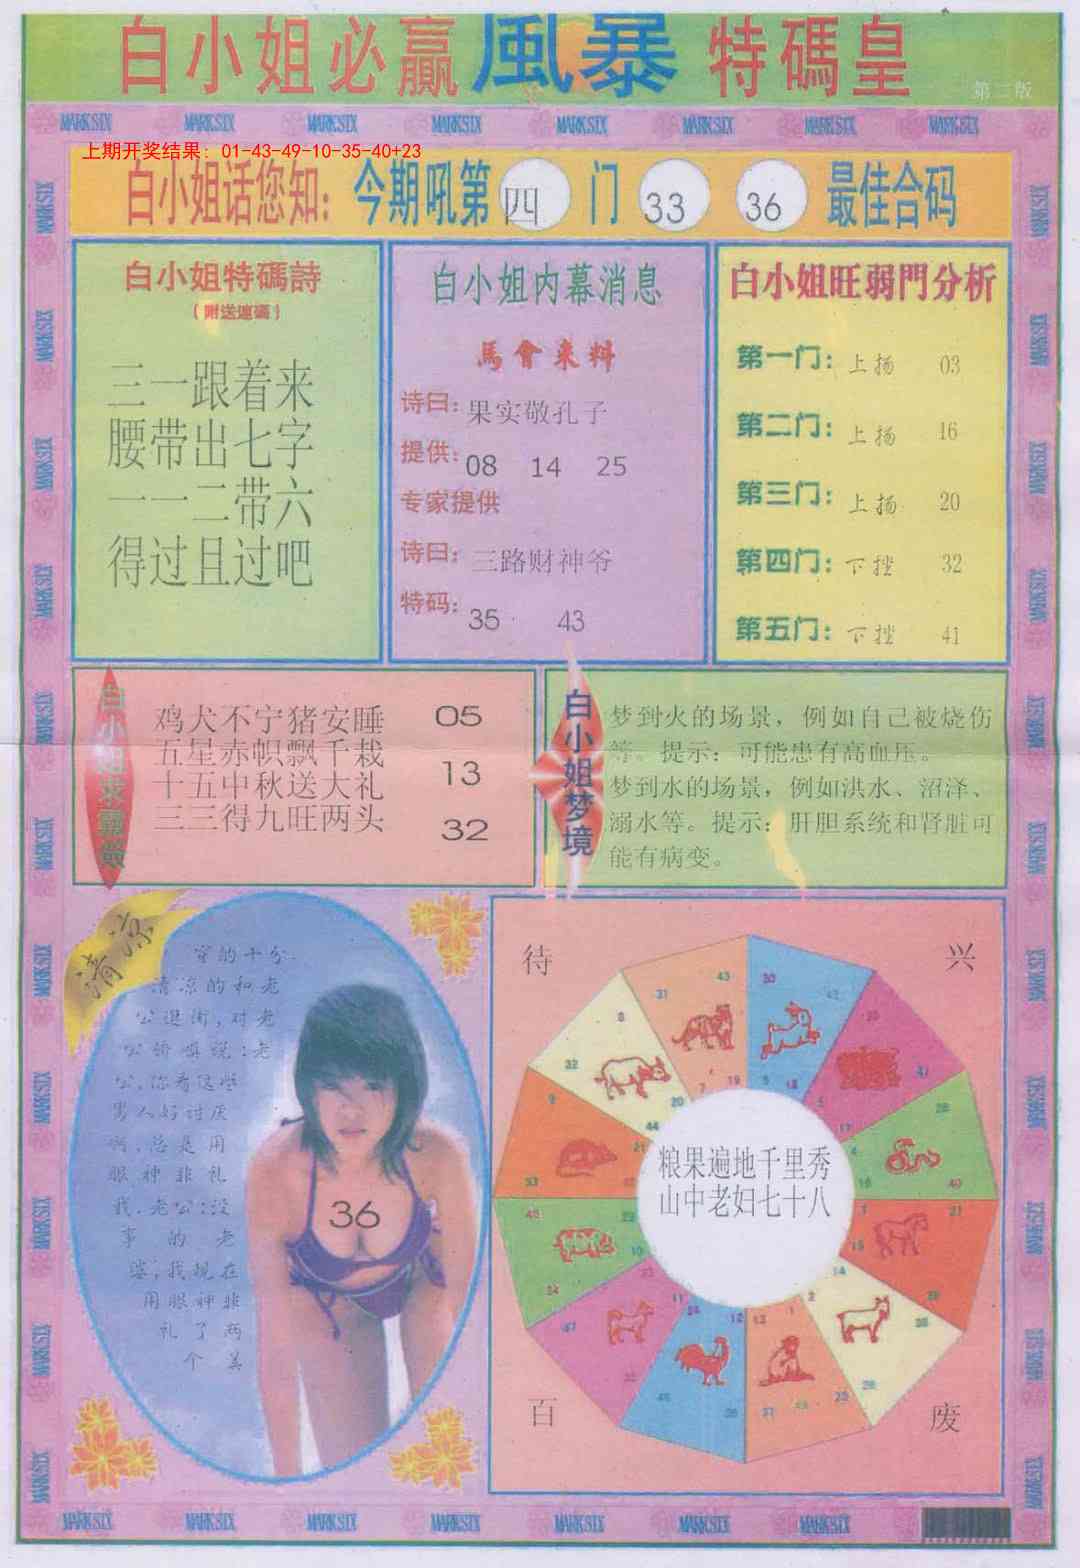 白小姐必赢風暴特碼皇
第二版
MARKSIX MARKSIX MARKSIX MARKSIX MARKSIX MARKSIX MARKSIX MARKSIX
上期开奖结果: 01-43-49-10-35-40+23
白小姐话您知: 今期吼第四门 33 36 最佳合码
白小姐特碼詩
(附送連碼)
三一跟着来
腰带出七字
一一二带六
得过且过吧
白小姐内幕消息
馬會来料
诗曰: 果实敬孔子
提供: 08 14 25
专家提供
诗曰: 三路财神爷
特码: 35 43
白小姐旺弱門分析
第一门: 上扬 03
第二门: 上扬 16
第三门: 上扬 20
第四门: 下挫 32
第五门: 下挫 41
鸡犬不宁猪安睡 05
五星赤帜飘千栽
十五中秋送大礼 13
三三得九旺两头 32
白小姐梦境
梦到火的场景，例如自己被烧伤
等。提示: 可能患有高血压。
梦到水的场景，例如洪水、沼泽、
溺水等。提示: 肝胆系统和肾脏可
能有病变。
清凉
穿的十分
清凉的和老
公逛街，对老
公娇嗔说:老
公，你看这些
男人好讨厌
啊，总是用
眼神非礼
我.老公:没
事的老
婆，我现在
用眼神非
礼了两
个美
36
待
兴
粮果遍地千里秀
山中老妇七十八
百
废
MARKSIX MARKSIX MARKSIX MARKSIX MARKSIX MARKSIX MARKSIX